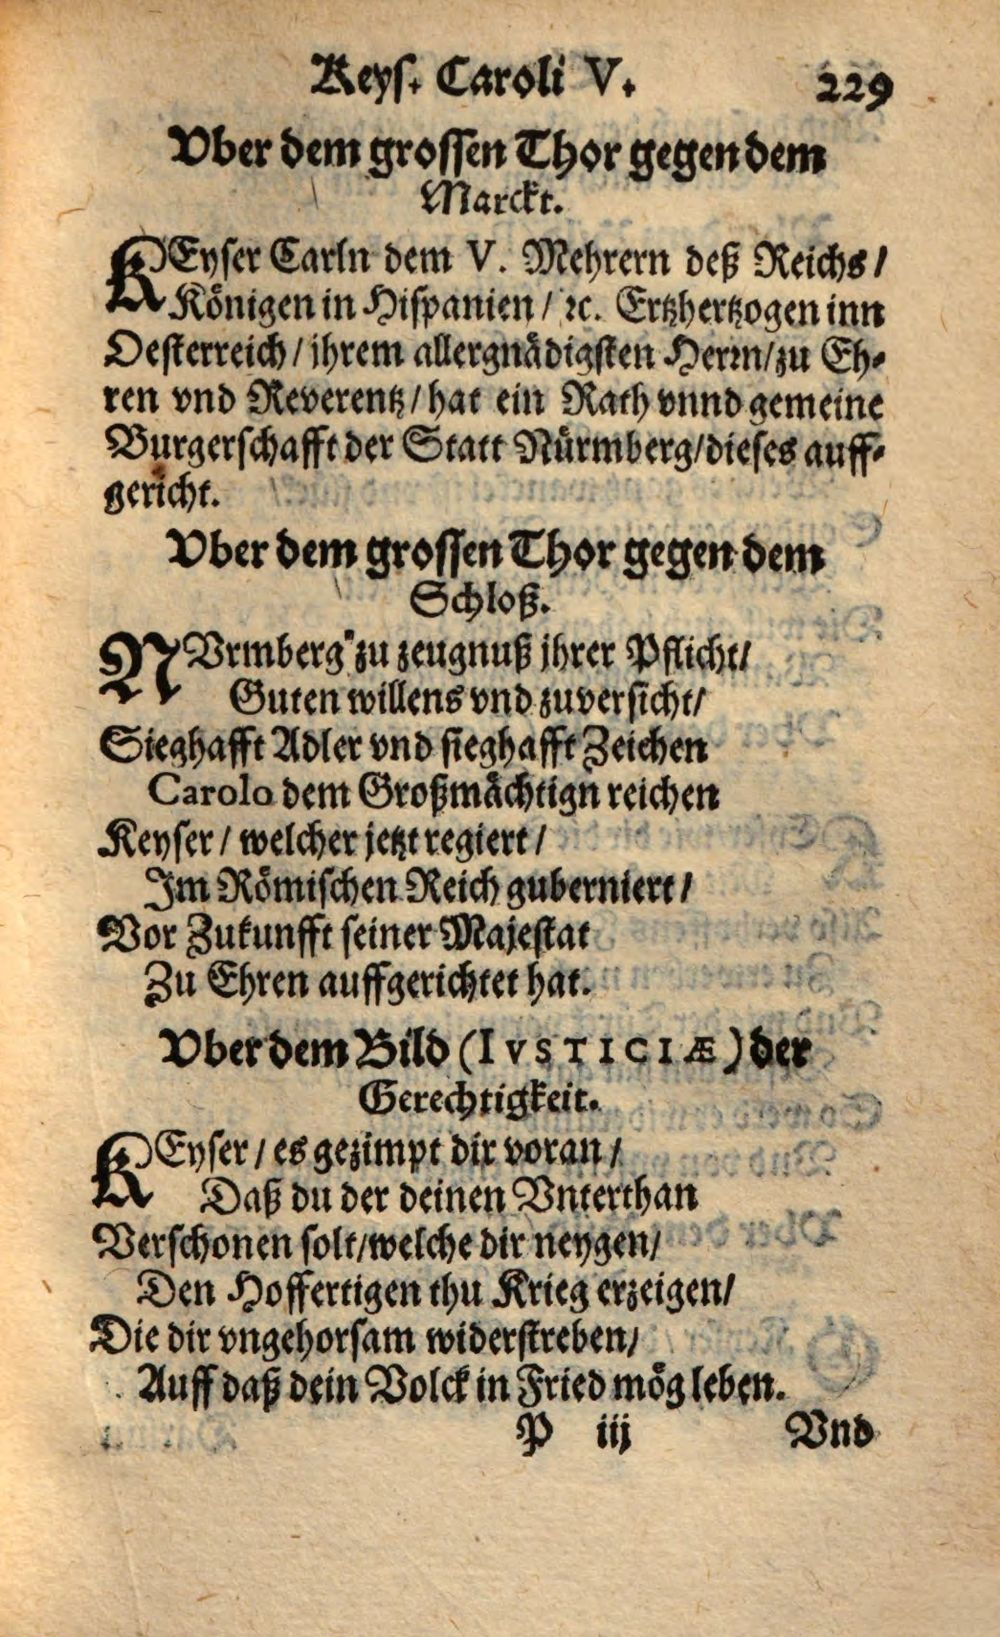 Keys. Caroli V. 229
Vber dem grossen Thor gegen dem
Marckt.
KEyser Carln dem V. Mehrern deß Reichs/
Königen in Hispanien/ ꝛc. Ertzhertzogen inn
Oesterreich/ ihrem allergnädigsten Herrn/zu Eh-
ren vnd Reverentz/ hat ein Rath vnnd gemeine
Burgerschafft der Statt Nürmberg/dieses auff-
gericht.
Vber dem grossen Thor gegen dem
Schloß.
NVrmberg zu zeugnuß jhrer Pflicht/
Guten willens vnd zuversicht/
Sieghafft Adler vnd sieghafft Zeichen
Carolo dem Großmächtign reichen
Keyser/ welcher jetzt regiert/
Im Römischen Reich guberniert/
Vor Zukunfft seiner Majestat
Zu Ehren auffgerichtet hat.
Vber dem Bild (IVSTICIÆ) der
Gerechtigkeit.
KEyser/ es gezimpt dir voran/
Daß du der deinen Vnterthan
Verschonen solt/welche dir neygen/
Den Hoffertigen thu Krieg erzeigen/
Die dir vngehorsam widerstreben/
Auff daß dein Volck in Fried mög leben.
P iij Vnd